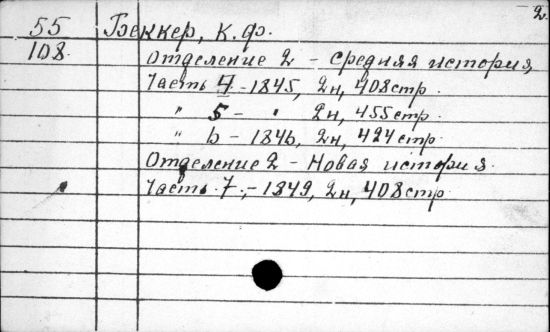 -2.
55 Беккер, К. Ф.
108. Отделение 2 - Средняя история,
Часть 4 - 1845, 2н, 408 стр.
" 5 - " 2н, 455 стр.
" 6 - 1846, 2н, 424 стр.
Отделение 2 - Новая история.
Часть 7, - 1849, 2н, 408 стр.